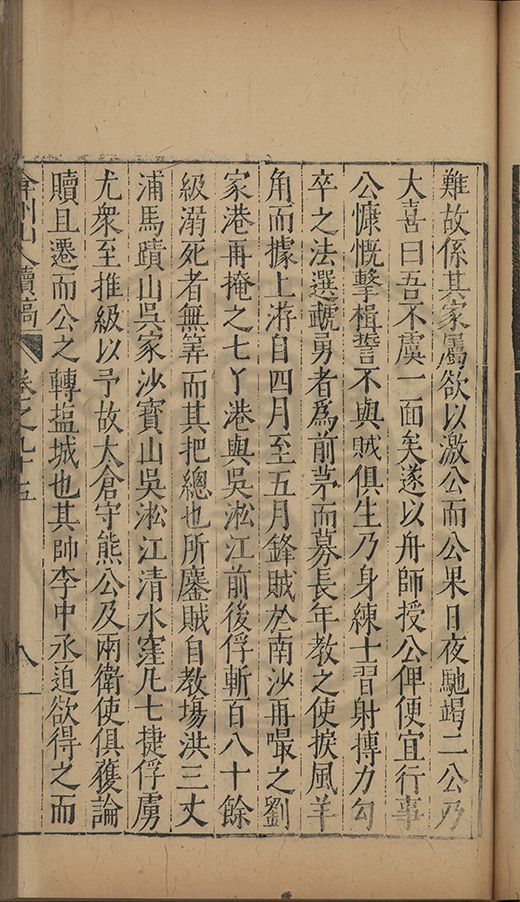 難故係其家屬欲以激公而公果日夜馳謁二公乃
大喜曰吾不虞一面矣遂以舟師授公俾便宜行事
公慷慨擊楫誓不與賊俱生乃身練士習射摶力勾
卒之法選虣勇者爲前茅而募長年教之使捩風羊
角而據上游自四月至五月鋒賊於南沙再嘬之劉
家港再掩之七丫港與吳淞江前後俘斬百八十餘
級溺死者無筭而其把總也所鏖賊自教場洪三丈
浦馬蹟山吳家沙寶山吳淞江清水窪凢七捷俘虜
尤衆至推級以予故太倉守熊公及兩衛使俱獲論
贖且遷而公之轉塩城也其帥李中丞迫欲得之而
弇州山人續稿 卷之九十五 八